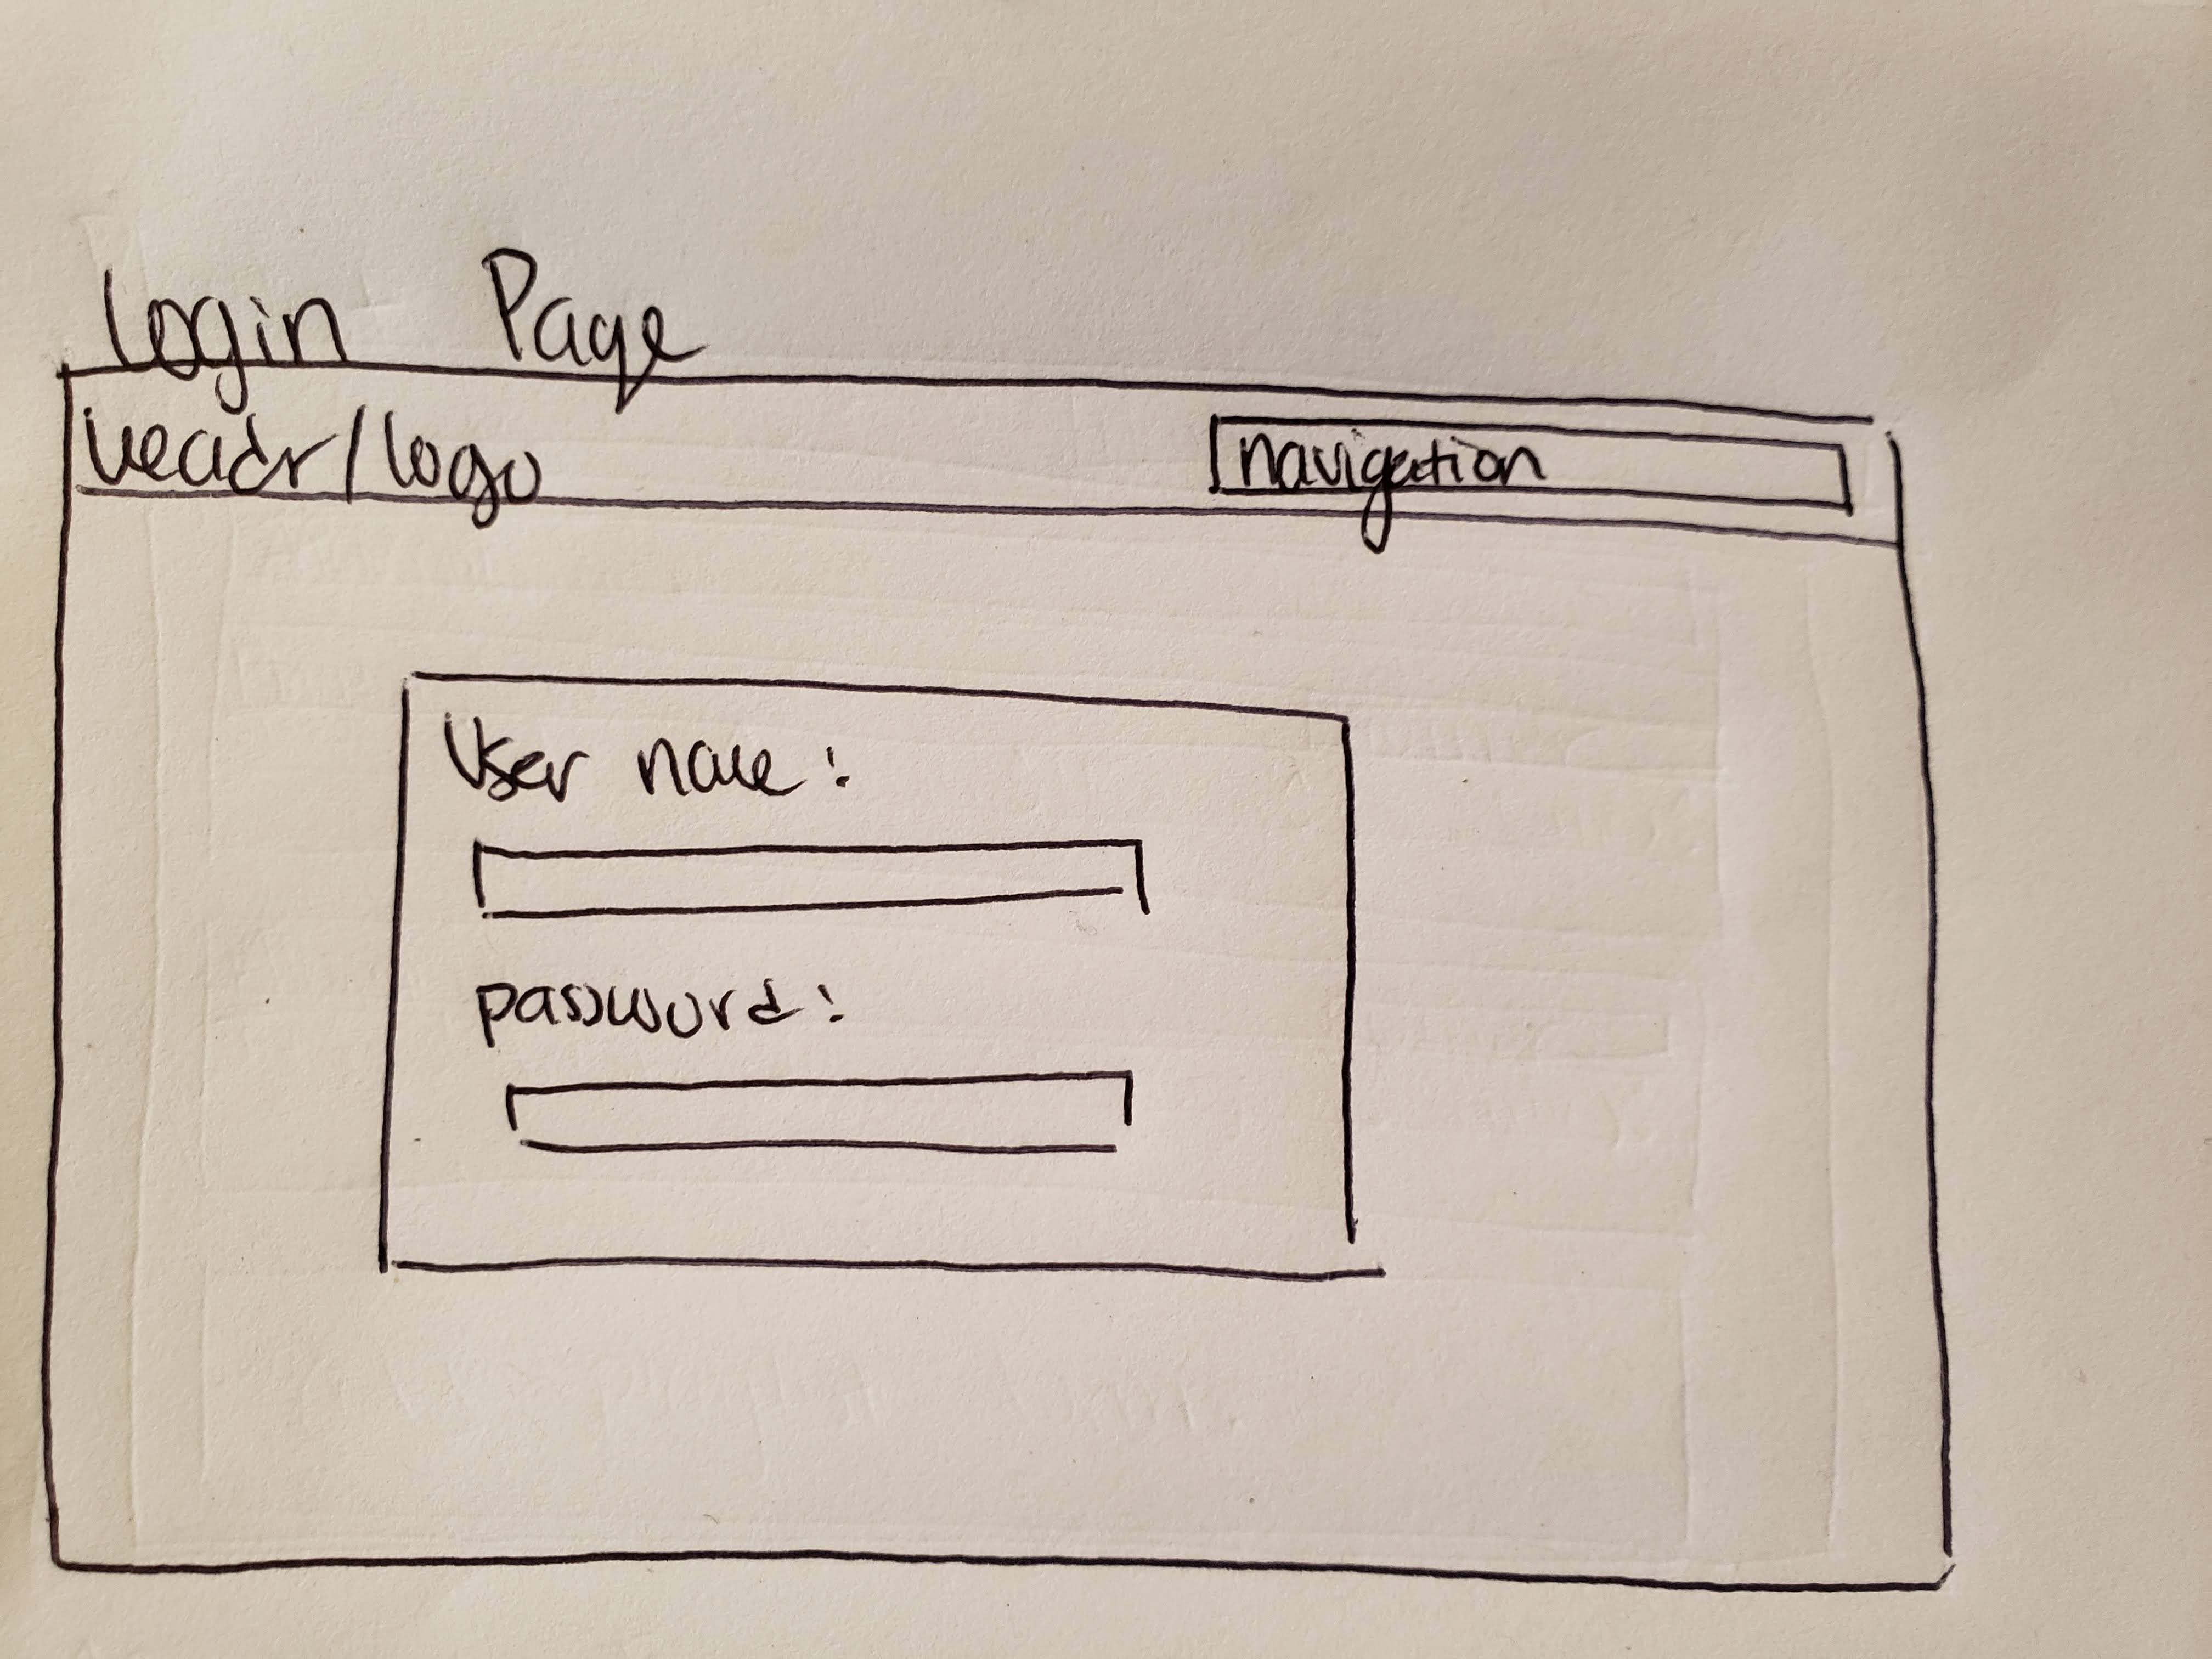 Login Page
header/logo
navigation
User name:
password: